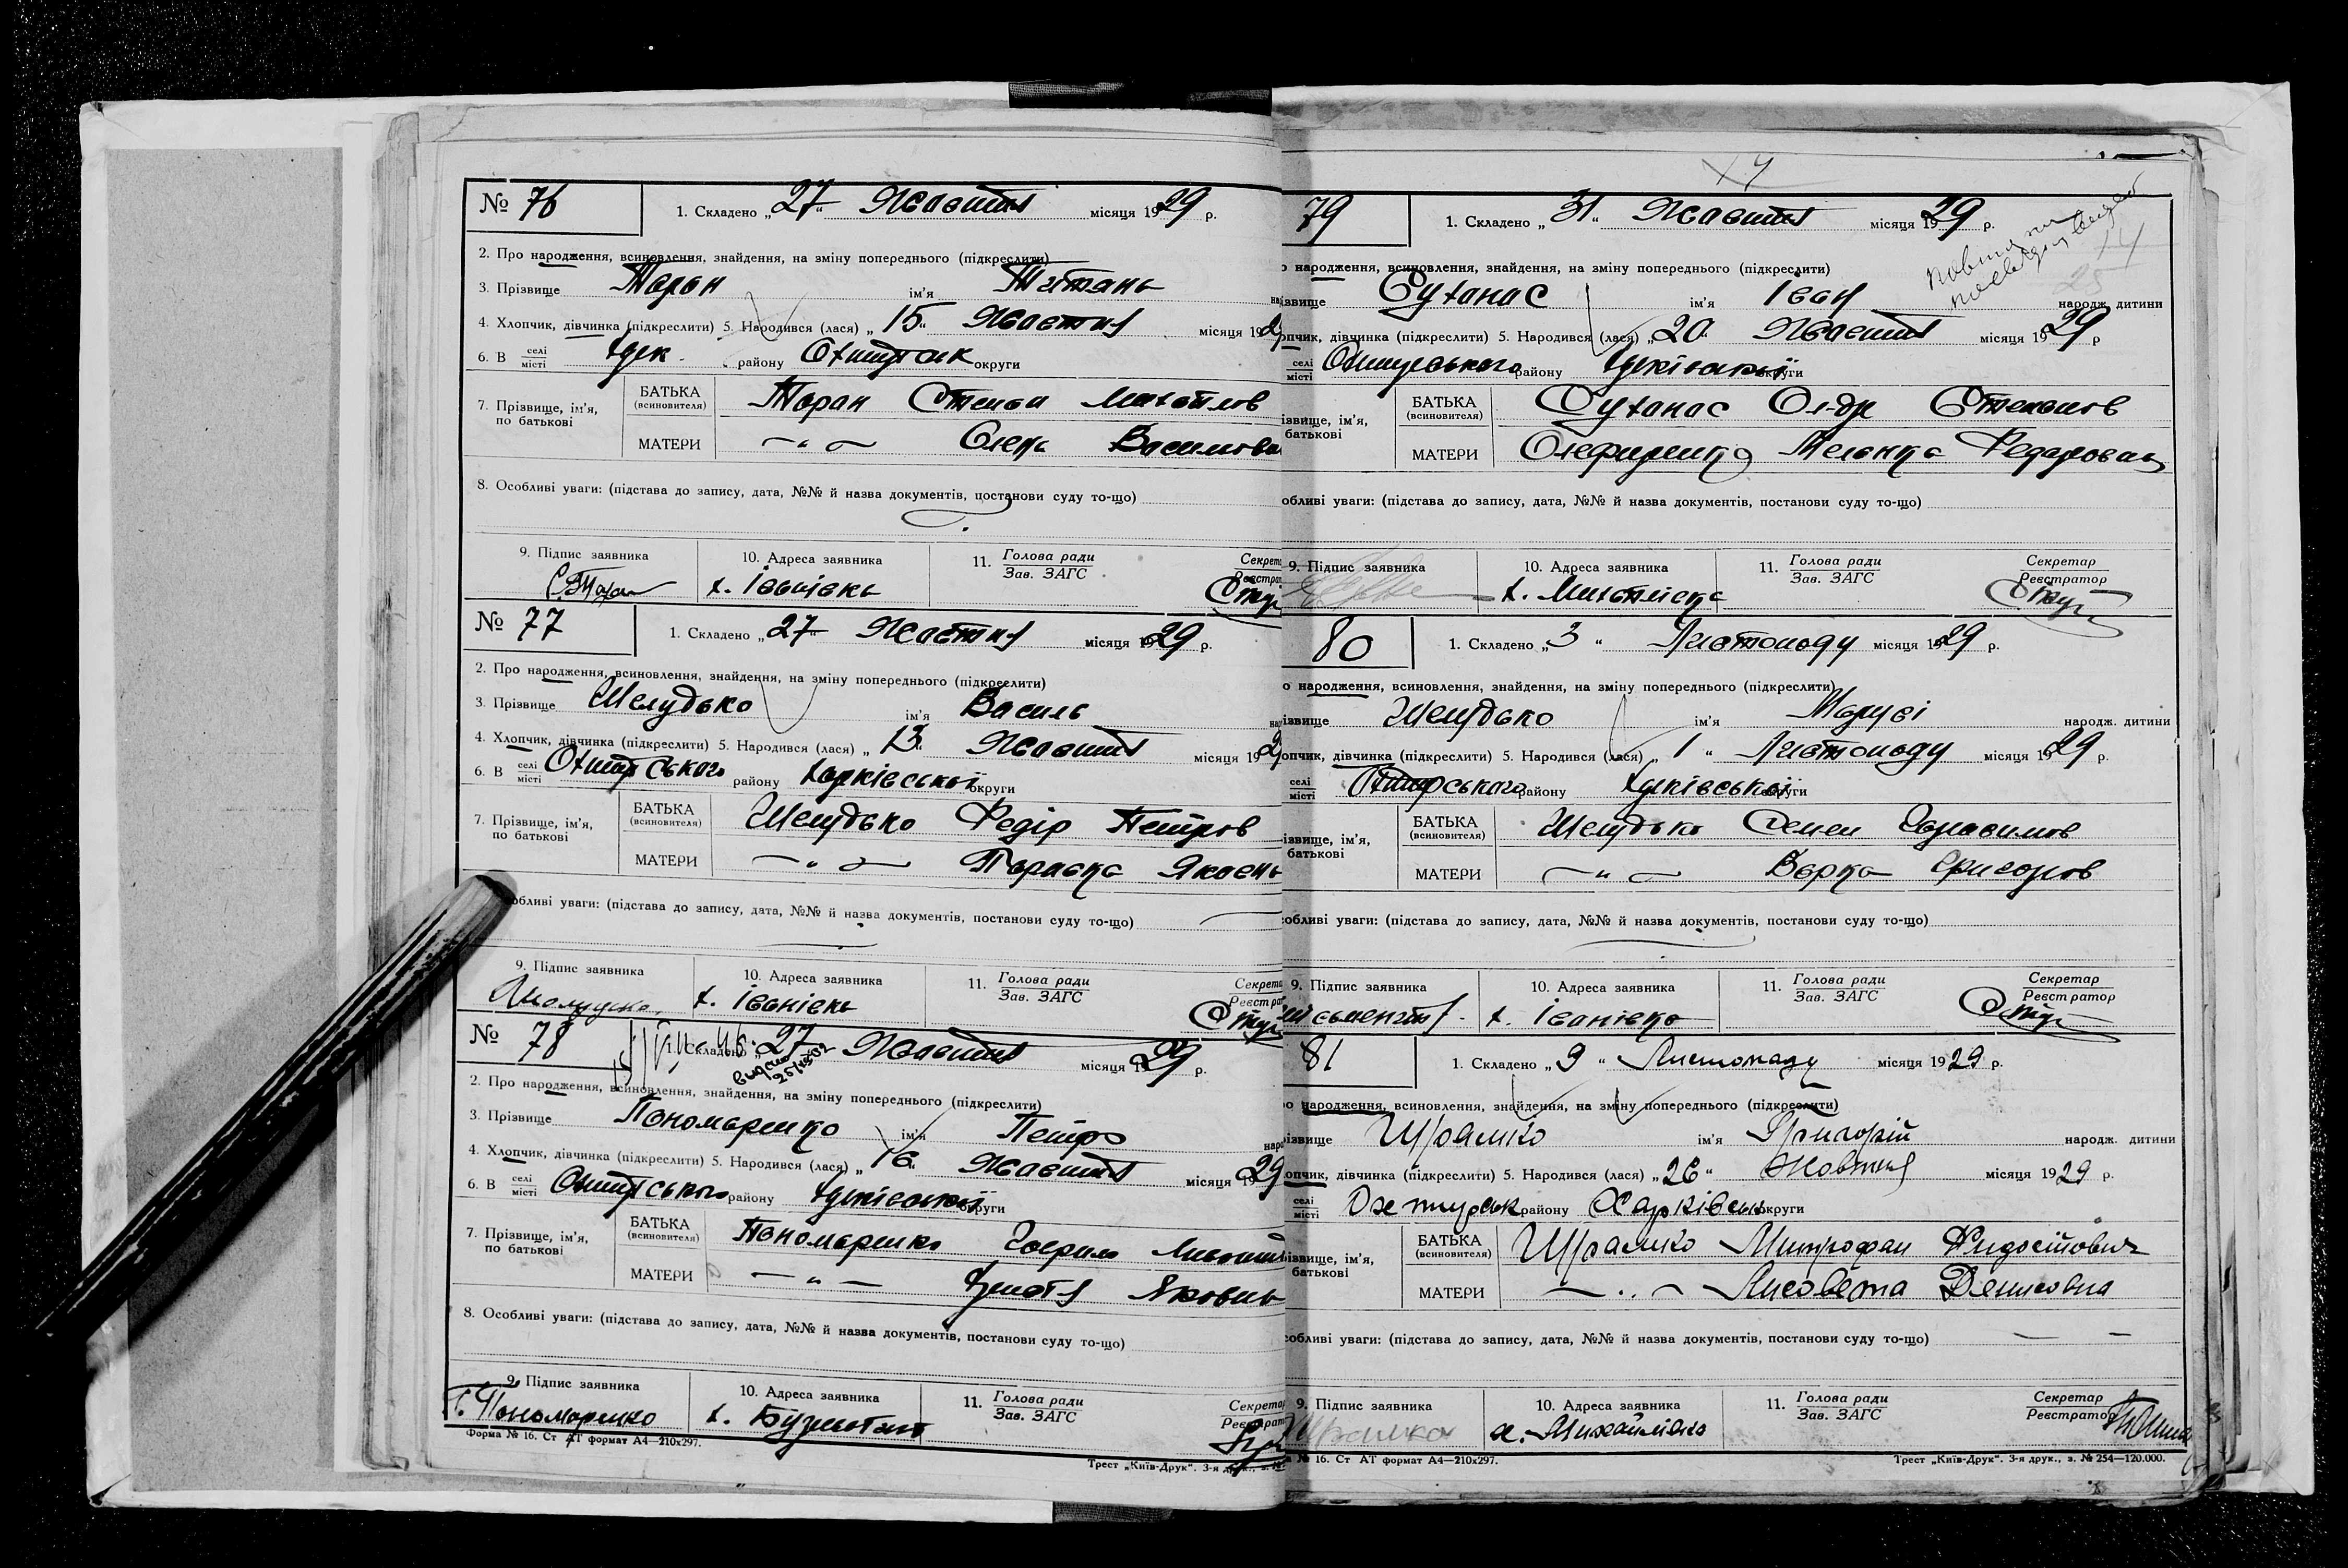 № 76
1. Складено „27“ Жовтня місяця 1929 р.
2. Про народження, всиновлення, знайдення, на зміну попереднього (підкреслити)
3. Прізвище Таран ім'я Тетяна
4. Хлопчик, дівчинка (підкреслити) 5. Народився (лася) „15“ Жовтня місяця 192
6. В селі місті району округи
7. Прізвище, ім'я, по батькові
БАТЬКА (всиновителя) Таран Степан Михайлов
МАТЕРИ — „ — Олена Василовна
8. Особливі уваги: (підстава до запису, дата, №№ й назва документів, постанови суду то-що)
9. Підпис заявника 10. Адреса заявника 11. Голова ради Зав. ЗАГС
С. Таран х. Іванівка
№ 77
1. Складено „27“ Жовтня місяця 1929 р.
2. Про народження, всиновлення, знайдення, на зміну попереднього (підкреслити)
3. Прізвище Шелудько ім'я Василь
4. Хлопчик, дівчинка (підкреслити) 5. Народився (лася) „13“ Жовтня місяця 192
6. В селі місті району Харківської округи
7. Прізвище, ім'я, по батькові
БАТЬКА (всиновителя) Шелудько Федір Петров
МАТЕРИ — „ — Параска Яковн
обливі уваги: (підстава до запису, дата, №№ й назва документів, постанови суду то-що)
9. Підпис заявника 10. Адреса заявника 11. Голова ради Зав. ЗАГС
х. Іванівка
№ 78
1. Складено „27 Жовтня місяця 1929 р.
2. Про народження, всиновлення, знайдення, на зміну попереднього (підкреслити)
3. Прізвище Пономаренко ім'я Петро
4. Хлопчик, дівчинка (підкреслити) 5. Народився (лася) „16“ Жовтня місяця 1929
6. В селі місті району Харківської округи
7. Прізвище, ім'я, по батькові
БАТЬКА (всиновителя) Пономаренко Гаврило
МАТЕРИ — „ — Яковн
8. Особливі уваги: (підстава до запису, дата, №№ й назва документів, постанови суду то-що)
9. Підпис заявника 10. Адреса заявника 11. Голова ради Зав. ЗАГС
Г. Пономаренко
Форма № 16. Ст АТ формат А4—210х297.
Трест „Київ-Друк“. 3-я
79
1. Складено „31“ Жовтня місяця 1929 р.
о народження, всиновлення, знайдення, на зміну попереднього (підкреслити)
ізвище Сутанас ім'я Іван народж. дитини
опчик, дівчинка (підкреслити) 5. Народився (лася) „20“ Жовтня місяця 1929 р
селі місті району Харківської округи
ізвище, ім'я, батькові
БАТЬКА (всиновителя) Сутанас Ол-др Степанов
МАТЕРИ Олефиренко Меланка Федоровна
обливі уваги: (підстава до запису, дата, №№ й назва документів, постанови суду то-що)
9. Підпис заявника 10. Адреса заявника 11. Голова ради Зав. ЗАГС Секретар Реєстратор
х. Михайлівка
80
1. Складено „3“ Листопаду місяця 1929 р.
о народження, всиновлення, знайдення, на зміну попереднього (підкреслити)
ізвище Шелудько ім'я народж. дитини
опчик, дівчинка (підкреслити) 5. Народився (лася) „1“ Листопаду місяця 1929 р.
селі місті району Харківської округи
ізвище, ім'я, батькові
БАТЬКА (всиновителя) Шелудько Семен Герасимов
МАТЕРИ — „ — Варка Григоров
собливі уваги: (підстава до запису, дата, №№ й назва документів, постанови суду то-що)
9. Підпис заявника 10. Адреса заявника 11. Голова ради Зав. ЗАГС Секретар Реєстратор
х. Іванівка
81
1. Складено „9“ Листопаду місяця 1929 р.
о народження, всиновлення, знайдення, на зміну попереднього (підкреслити)
ізвище Шрамко ім'я Григорій народж. дитини
опчик, дівчинка (підкреслити) 5. Народився (лася) „26“ Жовтня місяця 1929 р.
селі місті району Харківськ округи
ізвище, ім'я, батькові
БАТЬКА (всиновителя) Шрамко Митрофан Федосійович
МАТЕРИ — „ — Лисовета Денисовна
собливі уваги: (підстава до запису, дата, №№ й назва документів, постанови суду то-що)
9. Підпис заявника 10. Адреса заявника 11. Голова ради Зав. ЗАГС Секретар Реєстратор
Шрамко х. Михайлівка
№ 16. Ст АТ формат А4—210х297.
Трест „Київ-Друк“. 3-я друк., з. № 254—120.000.